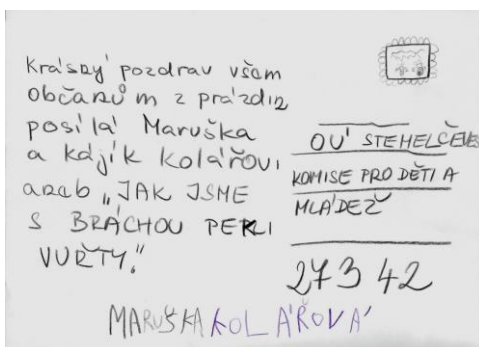 Krásný pozdrav všem
občanům z prázdnin
posílá Maruška
a Kájík Kolářovi
aneb „JAK JSME
S BRÁCHOU PEKLI
VUŘTY."
OÚ STEHELČEVES
KOMISE PRO DĚTI A
MLÁDEŽ
273 42
MARUŠKA KOLÁŘOVÁ